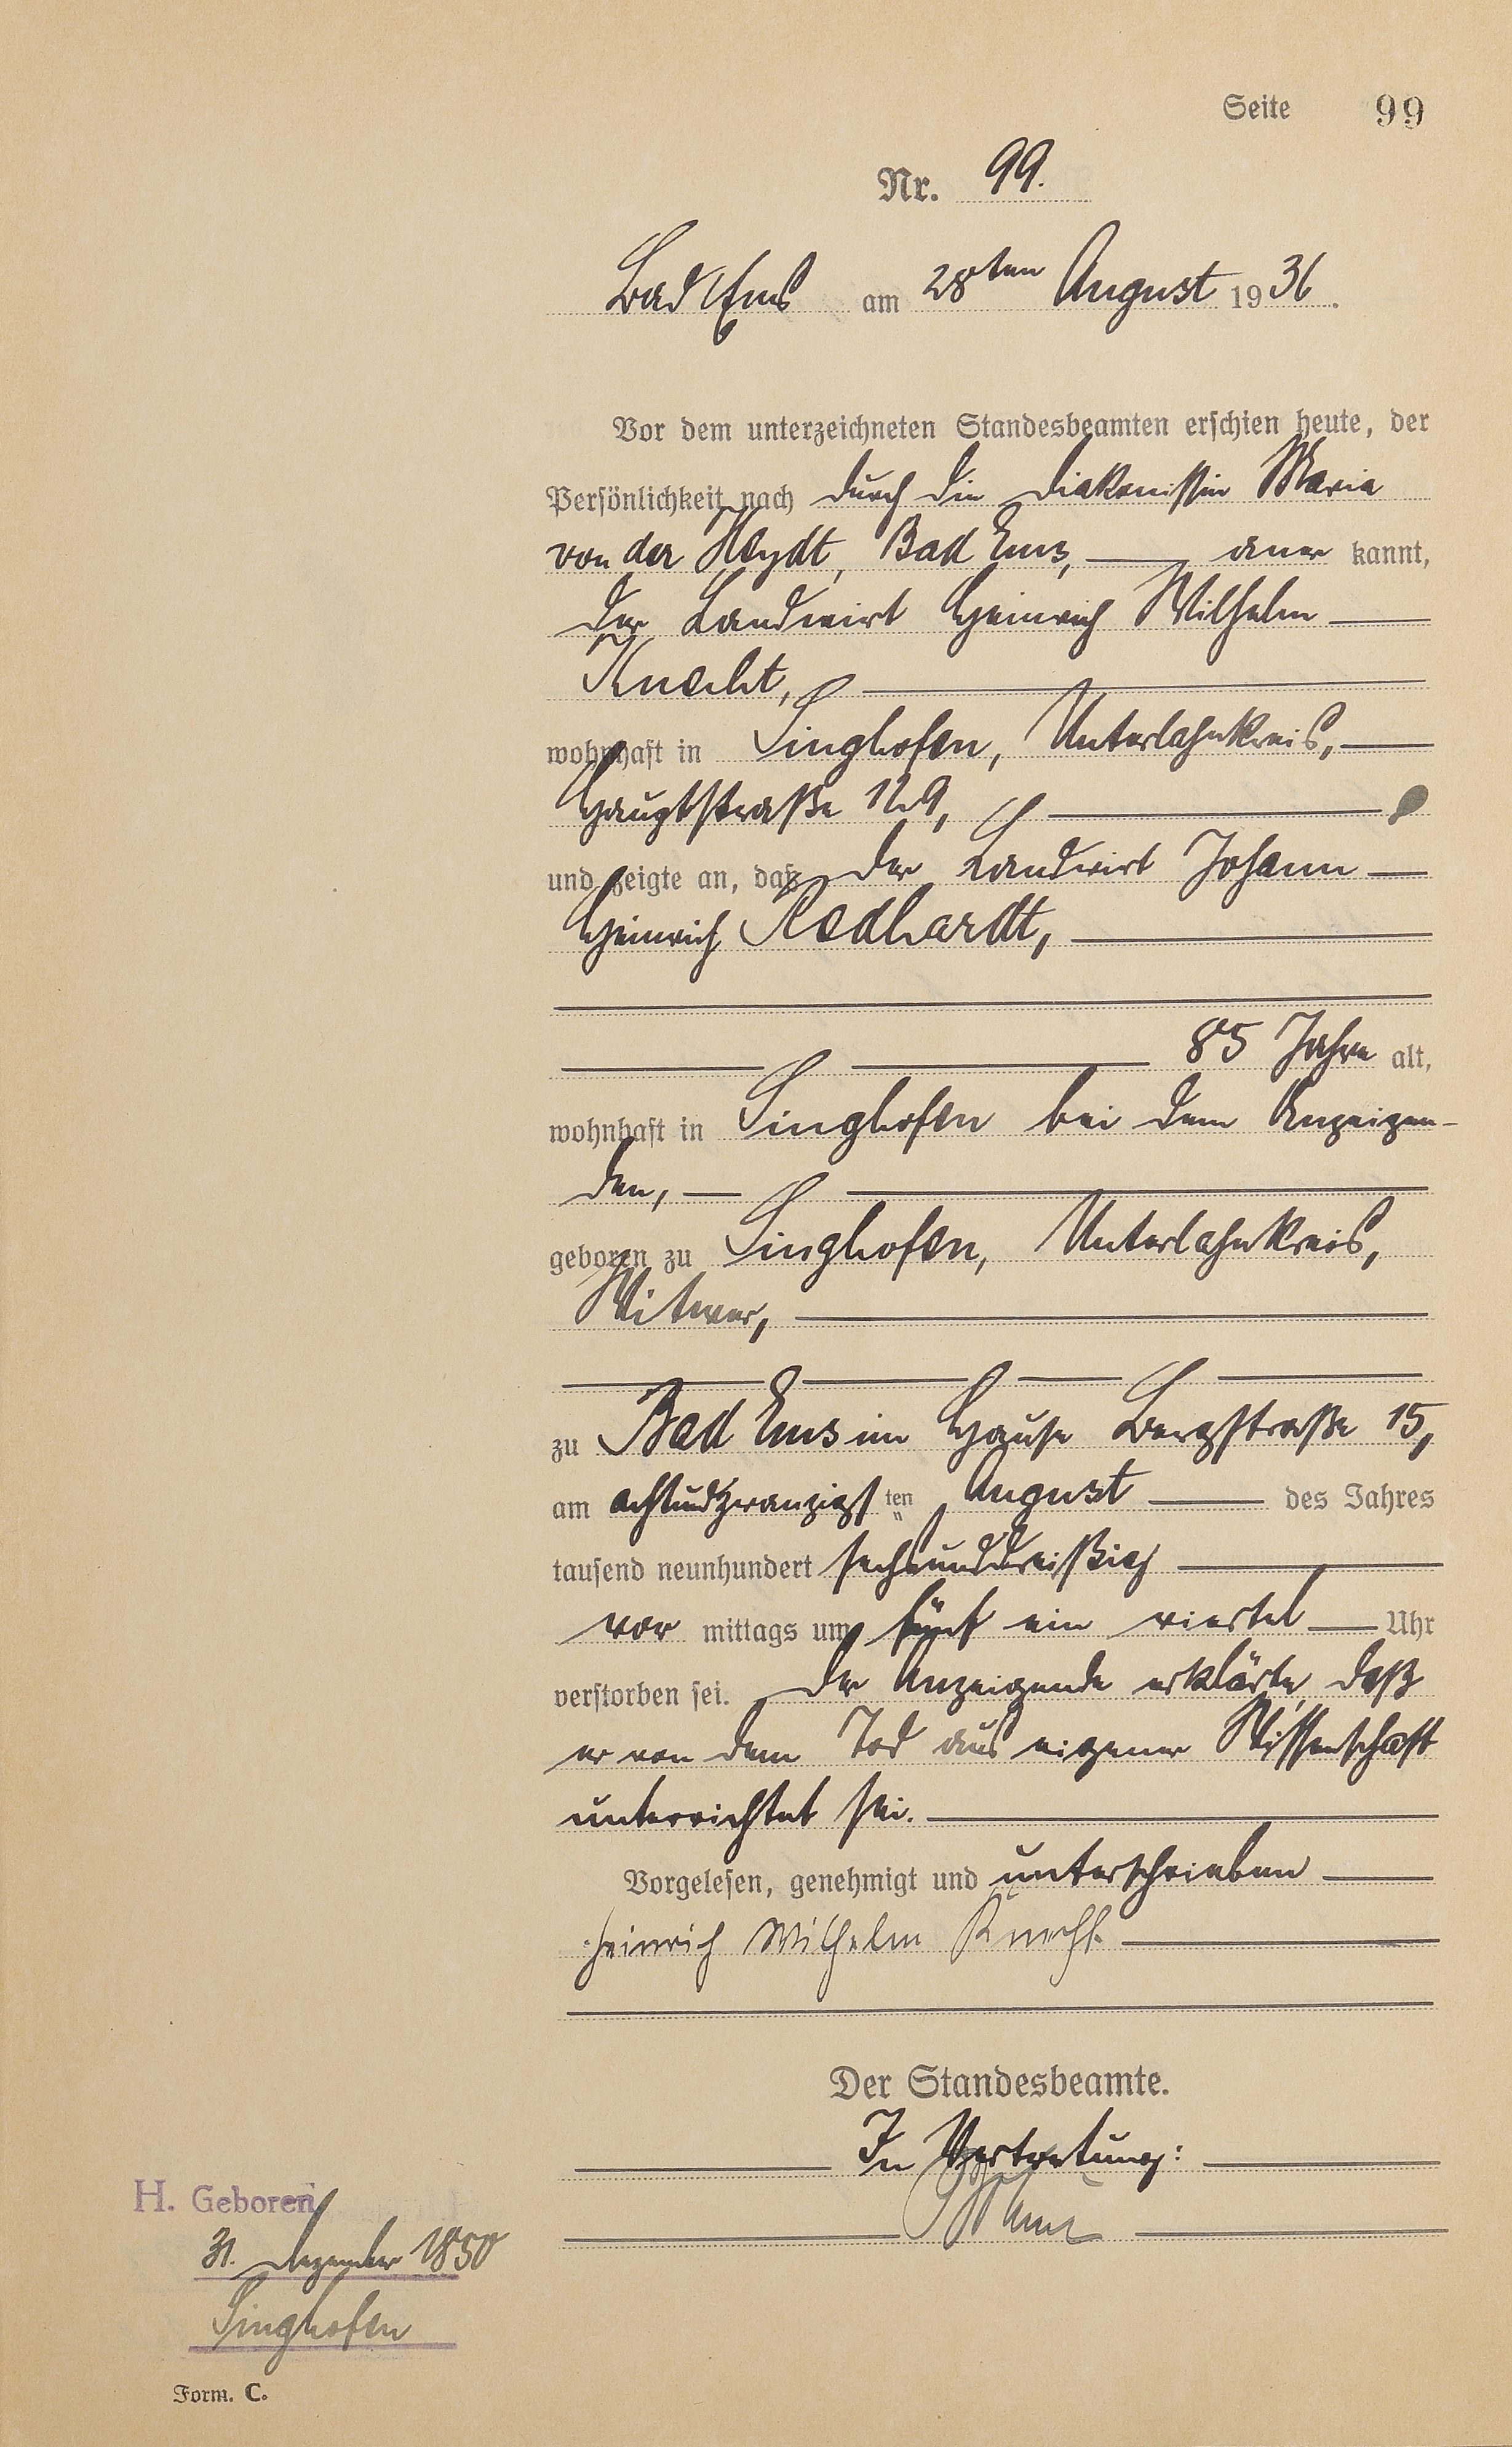 Seite 99
Nr. 99.
Bad Ems am 28ten August 1936.
Vor dem unterzeichneten Standesbeamten erschien heute, der
Persönlichkeit nach durch die Diakonissin Maria
von der Heydt, Bad Ems, aner kannt,
der Landwirt Heinrich Wilhelm
Knecht,
wohnhaft in Singhofen, Unterlahnkreis,
Hauptstraße 129,
und zeigte an, daß der Landwirt Johann
Heinrich Redhardt,
85 Jahre alt,
wohnhaft in Singhofen bei dem Anzeigen-
den,
geboren zu Singhofen, Unterlahnkreis,
Witwer,
zu Bad Ems im Hause Bergstraße 15,
am achtundzwanzigsten August des Jahres
tausend neunhundert sechsunddreißig
vor mittags um fünf ein viertel Uhr
verstorben sei. Der Anzeigende erklärte, daß
er von dem Tod aus eigener Wissenschaft
unterrichtet sei.
Vorgelesen, genehmigt und unterschrieben
Heinrich Wilhelm Knecht.
Der Standesbeamte.
In Vertretung:
H. Geboren
31. Dezember 1850
Singhofen
Form. C.